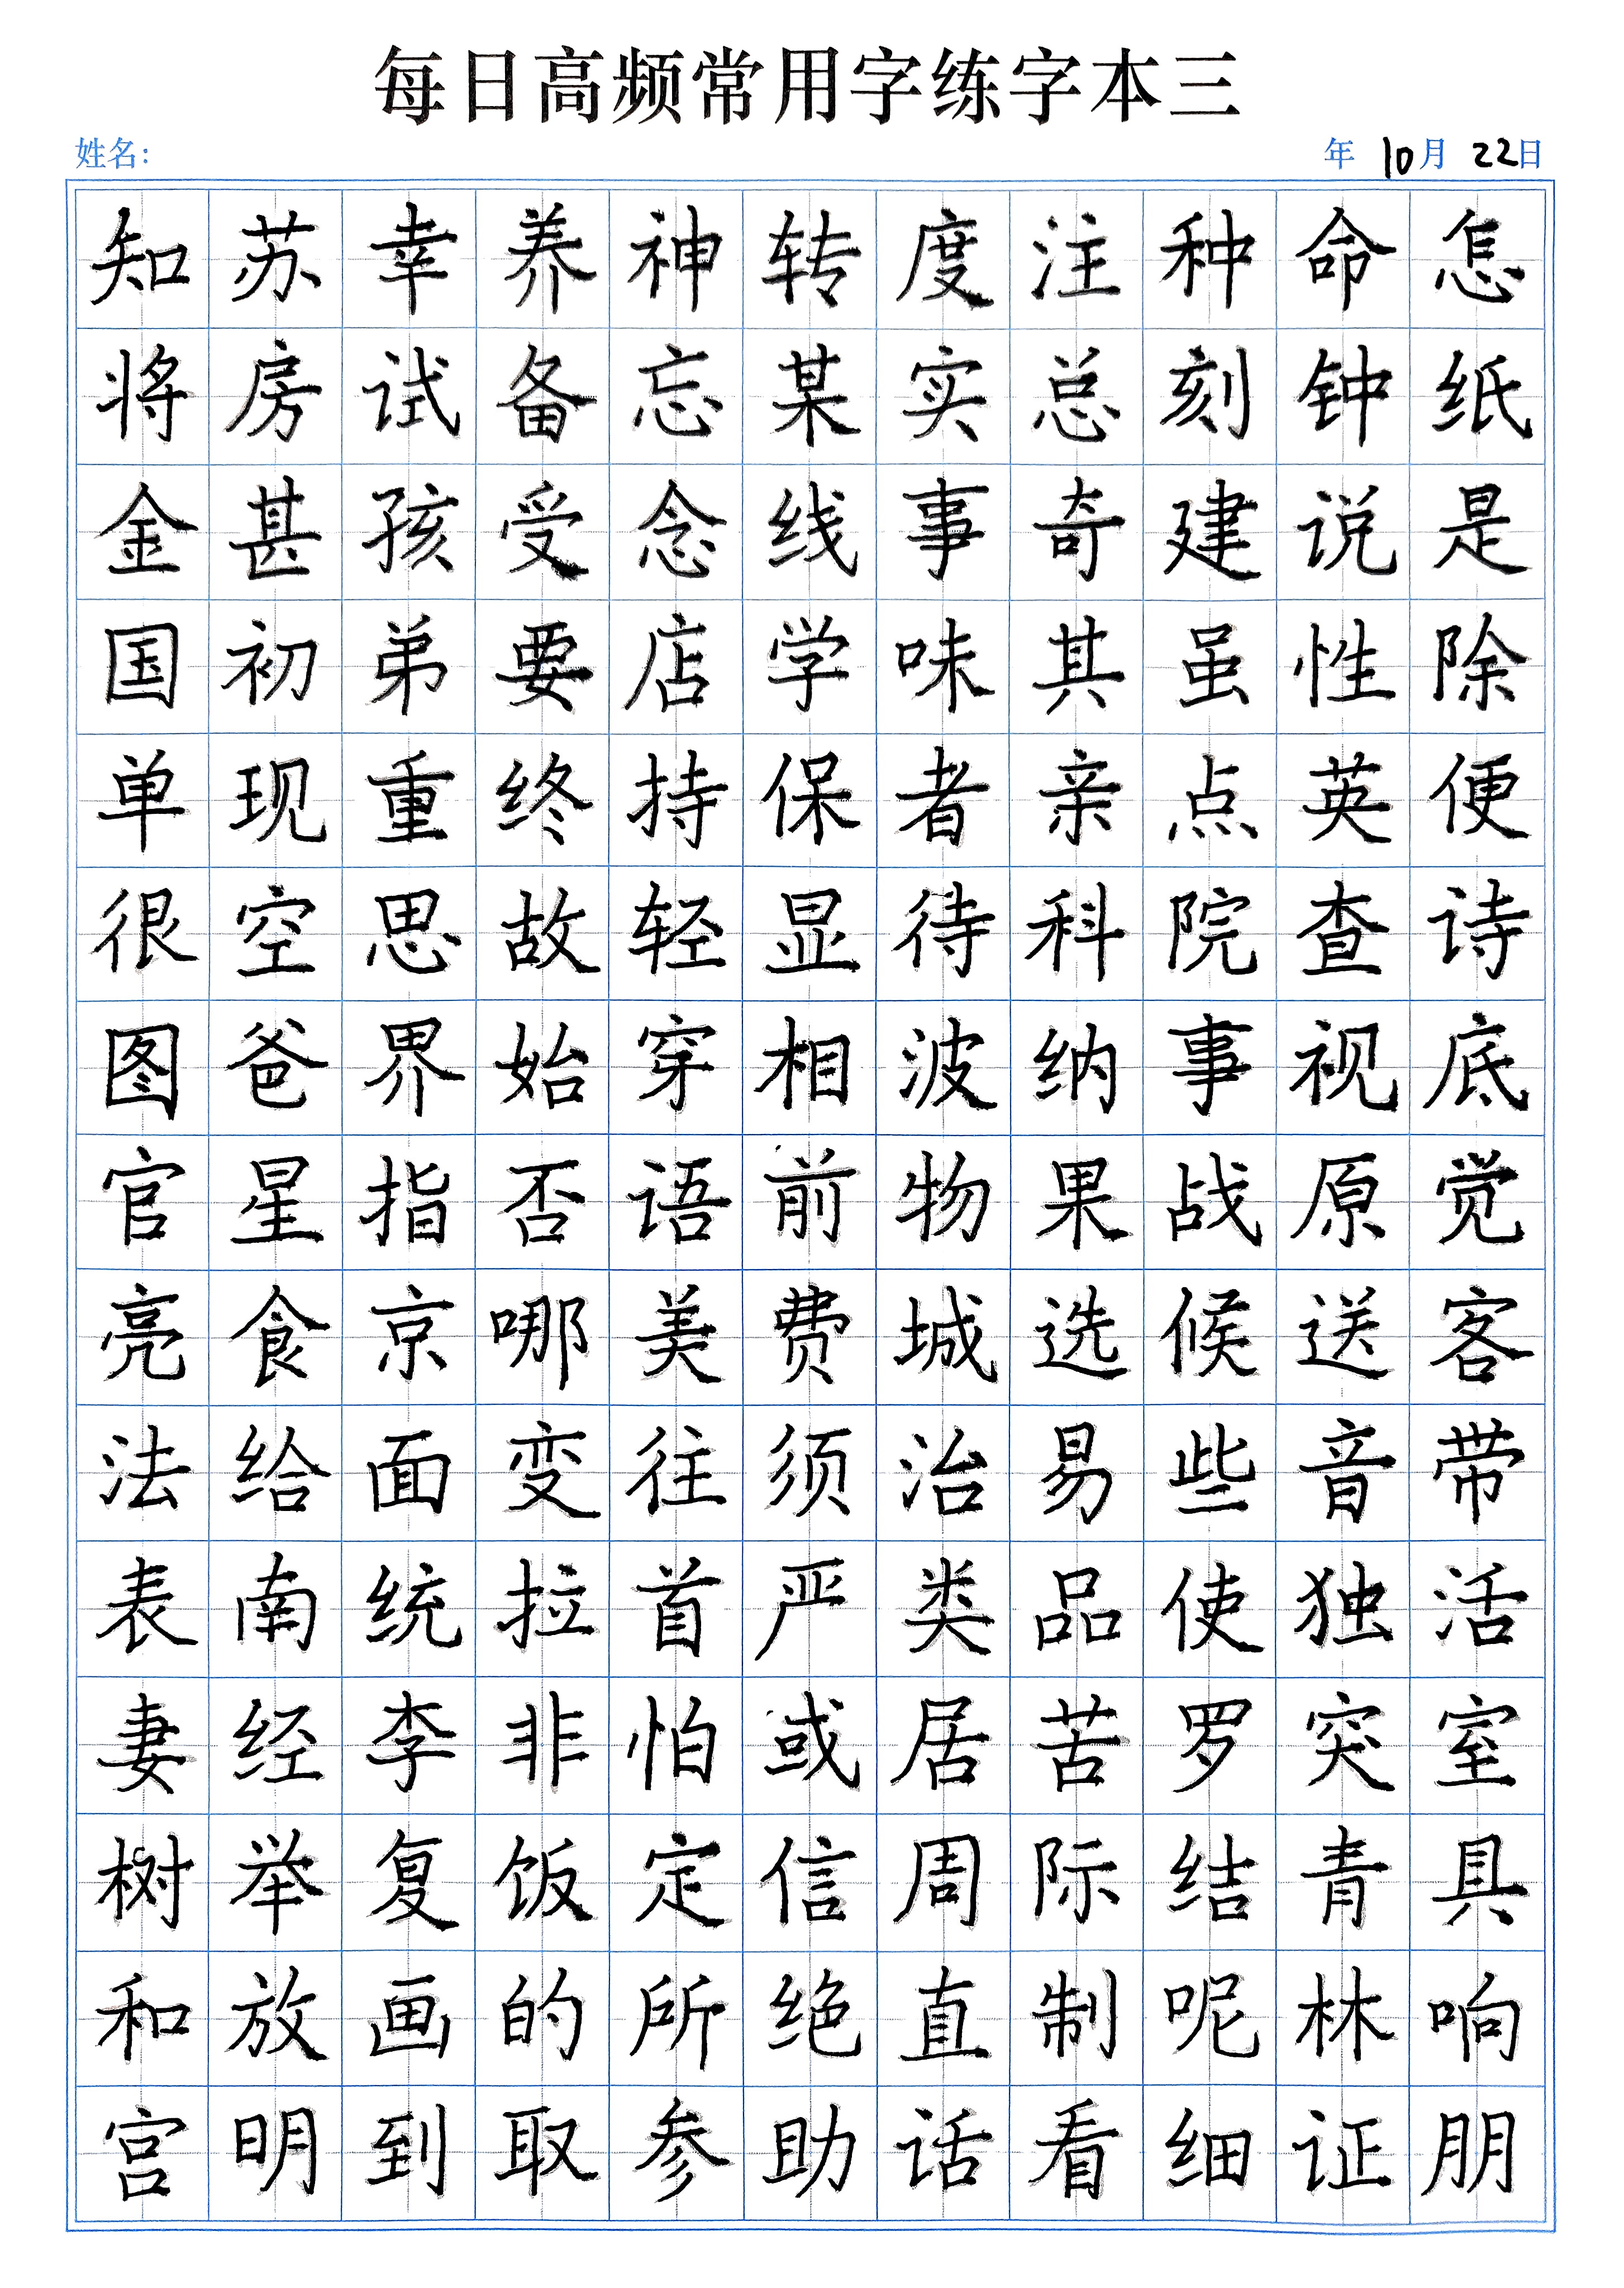 每日高频常用字练字本三
姓名： 年 10月 22日
知苏幸养神转度注种命怎
将房试备忘某实总刻钟纸
金甚孩受念线事奇建说是
国初弟要店学味其虽性除
单现重终持保者亲点英便
很空思故轻显待科院查诗
图爸界始穿相波纳事视底
官星指否语前物果战原觉
亮食京哪美费城选候送客
法给面变往须治易些音带
表南统拉首严类品使独活
妻经李非怕或居苦罗突室
树举复饭定信周际结青具
和放画的所绝直制呢林响
宫明到取参助话看细证朋